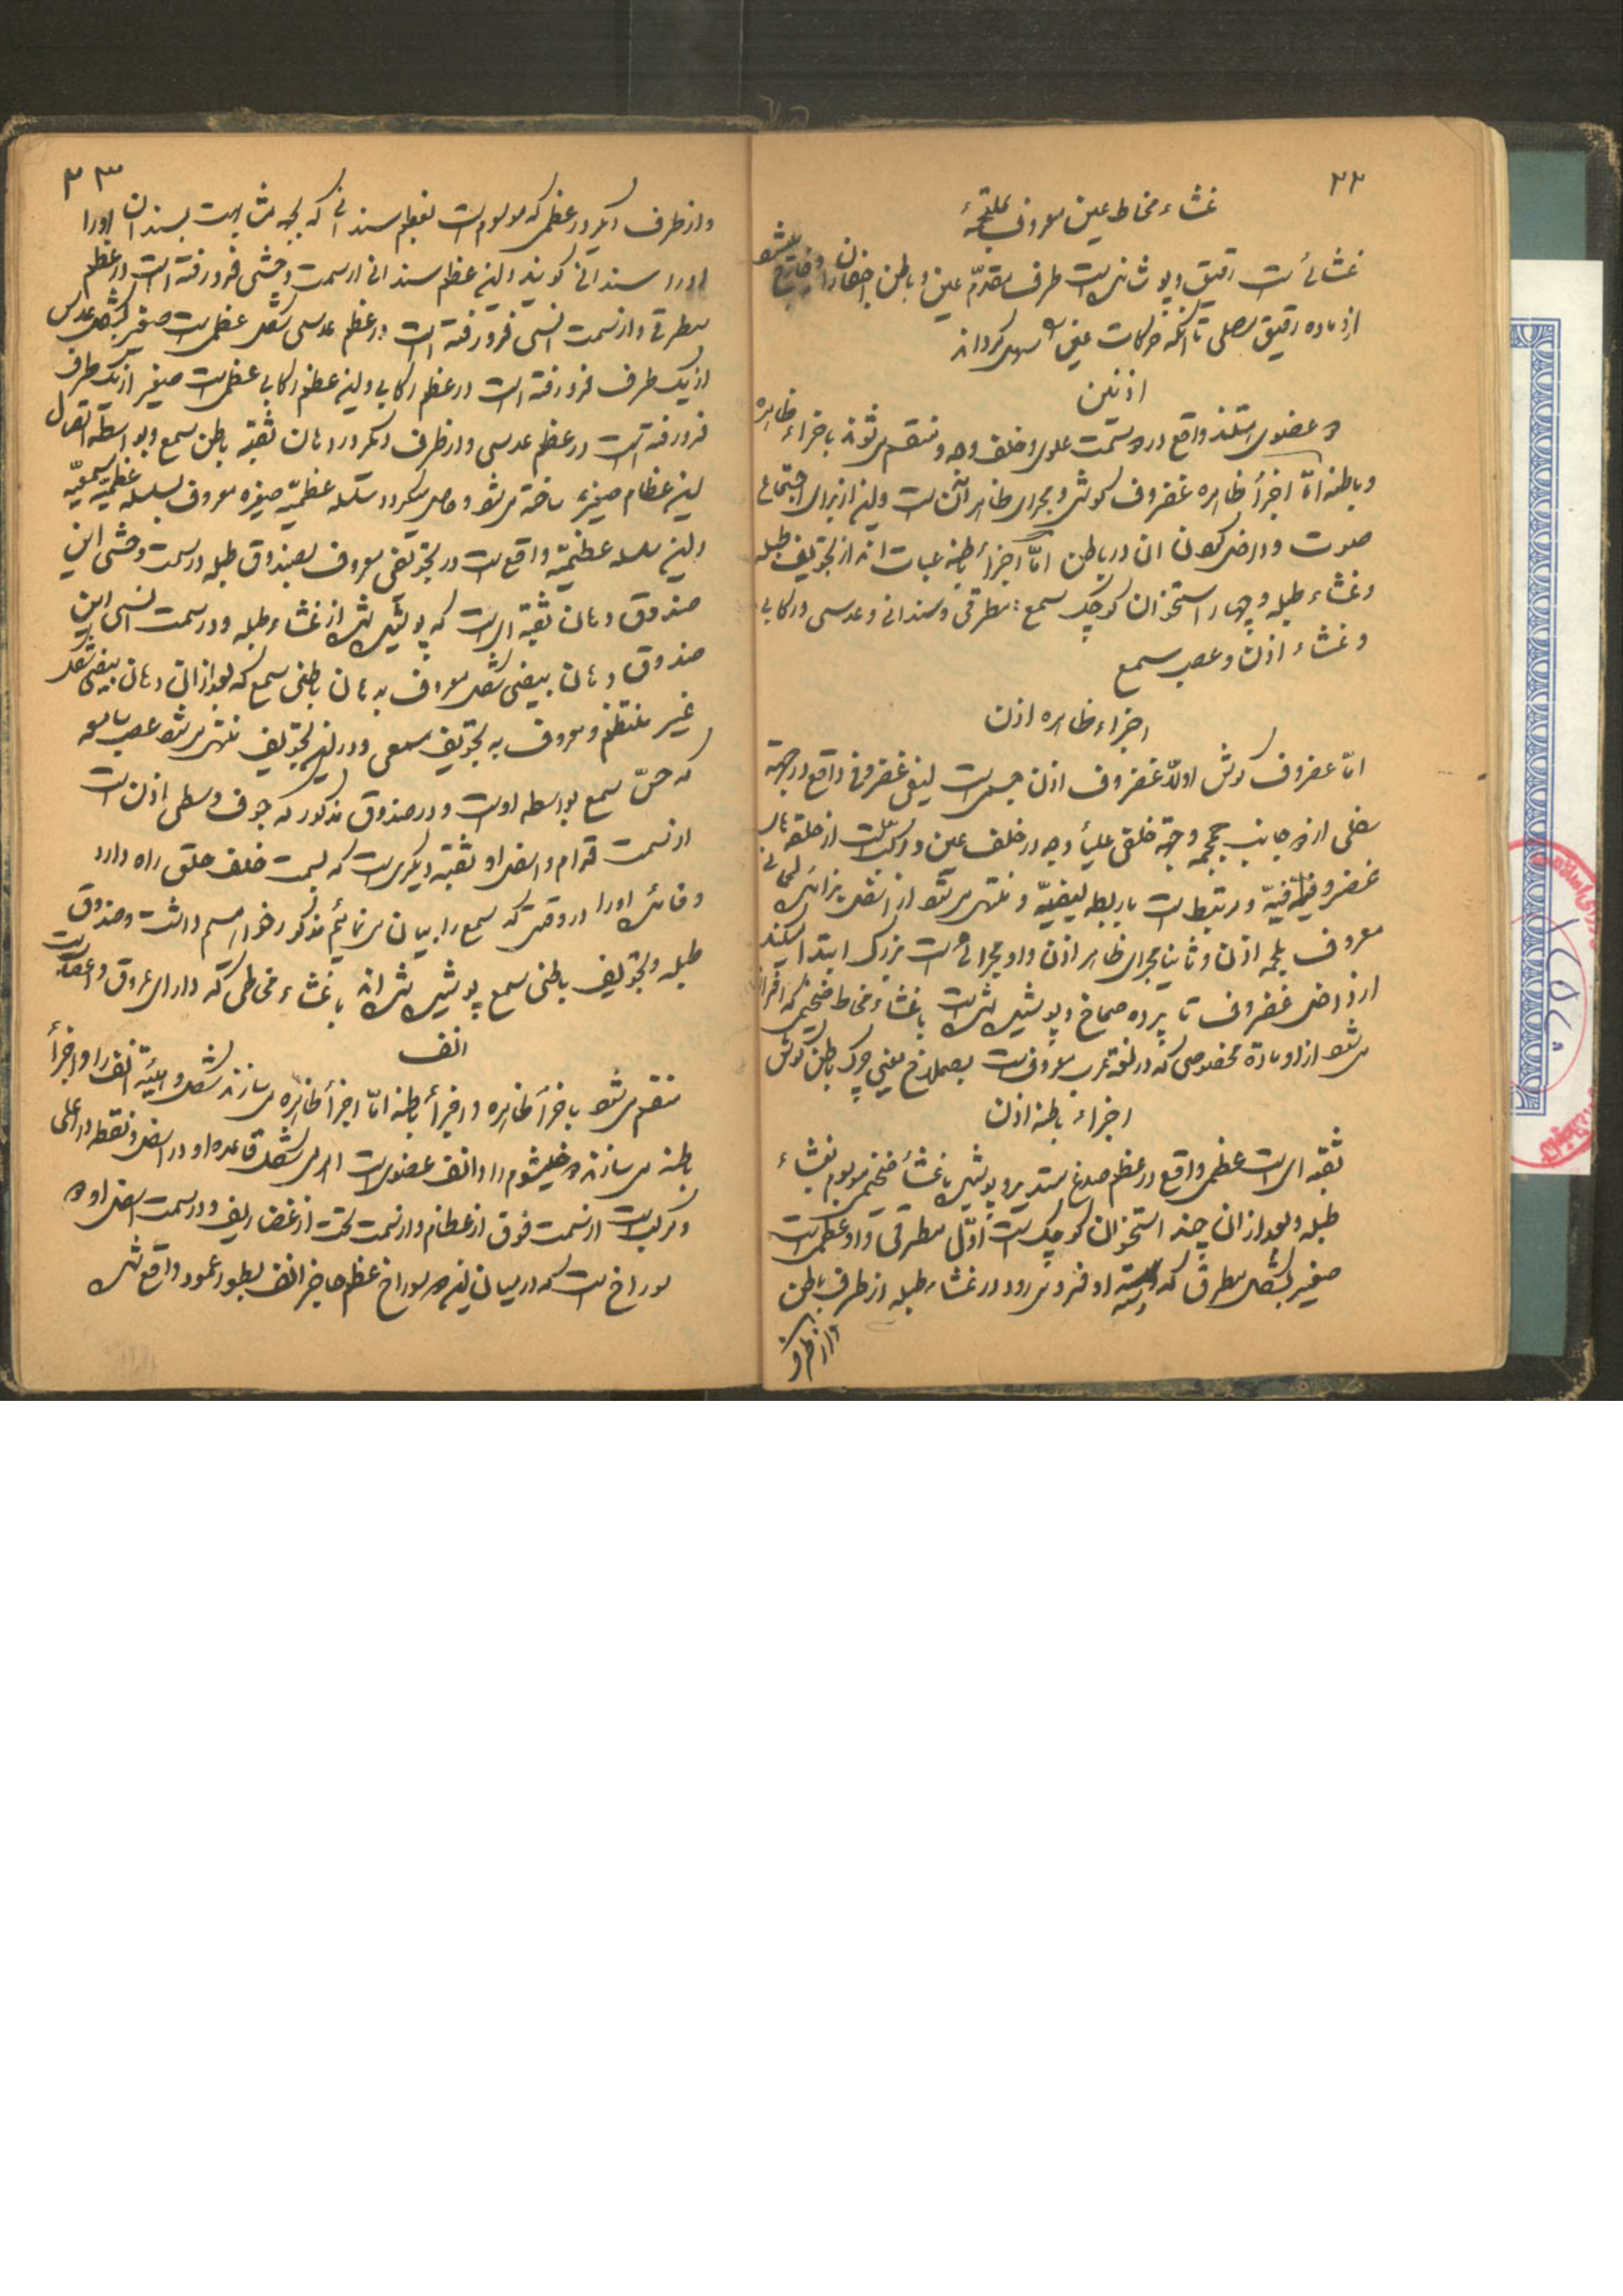 ۳۲
غشاء مخاط عین معروف بملتحمهٔ
غشائیست رقیق و پوشانیده است طرف مقدّم عین و باطن اجفان را و خارج میشو
از او ماده رقیق مصلی تا آنکه حرکات عین را سهل گرداند
اذنین
دو عضوی هستند واقع در دو سمت علوی و خلف وجه و منقسم میشوند باجزاء ظاهره
و باطنه امّا اجزأ ظاهره غضروف گوش و مجرای ظاهر آنست و این از برای اجتماع
صوت و داخل کردن ان در باطن امّا اجزأ باطنه عبارت اند از تجویف طبله
و غشاء طبله و چهار استخوان کوچک سمع: مطرقی و سندانی و عدسی و رکابی
و غشاء اذن و عصب سمع
اجزاء ظاهره اذن
امّا غضروف گوش اولاً غضروف اذن جسمی است لیفی غضروفی واقع در جهة
سفلی از دو جانب جمجمه و جهة خلفی علیأ وجه در خلف عین و مرکبست از حلقه‌های
غضروفیه و مرتبط است باربطه لیفیّه و منتهی میشو از اسفل بزائده لحمانی
معروف بلحمه اذن و ثانیا مجرای ظاهر اذن و او مجرائیست بزرگ ابتدا میکند
از داخل غضروف تا پرده صماخ و پوشیده شده است با غشاء مخاط ضخیمی که افراز
میشو از او مادّه مخصوصی که در لغة عرب معروفست بصملاخ یعنی چرک باطن گوش
اجزاء باطنه اذن
ثقبه ایست عظمی واقع در عظم صدغ مستدیر و پوشیده با غشأ ضخیمی موسوم بغشاء
طبله و بعد از ان چند استخوان کوچک است اوّل مطرقی و او عظمی است
صغیر بشکل مطرق که دسته او فرو میرود در غشاء طبله از طرف باطن
و از طرف
۳۳
و از طرف دیگر در عظمی که موسوم است بعظم سندانی که بجهة مشابهت بسندان اورا
اورا سندانی گویند و این عظم سندانی از سمت وحشی فرو رفته است در عظم
مطرقی و از سمت انسی فرو رفته است در عظم عدسی شکل عظمی است صغیر بشکل عدس
از یک طرف فرو رفته است در عظم رکابی و این عظم رکابی عظمی است صغیر از یک طرف
فرو رفته است در عظم عدسی و از طرف دیگر در دهان ثقبه باطن سمع و بواسطه اتصال
این عظام صغیره ساخته میشو و حاصل میگردد سلسله عظمیّه صغیره معروف بسلسله عظمیّه سمعیّه
و این سلسله عظمیّه واقع است در تجویفی معروف بصندوق طبله در سمت وحشی این
صندوق دهان ثقبه ایست که پوشیده شده از غشاء طبله و در سمت انسی این
صندوق دهان بیضی شکل معروف به دهان باطنی سمع که بعد از ان دهان بیضی شکل
غیر منتظم و معروف به تجویف سمعی و در این تجویف منتهی میشو عصب سامعه
که حسّ سمع بواسطه اوست و در صندوق مذکور که جوف وسطی اذن است
از سمت قدّام و اسفل او ثقبه دیگریست که بسمت خلف حلق راه دارد
و فائده اورا در وقتی که سمع را بیان می نمائیم مذکور خواهیم داشت و صندوق
طبله و تجویف باطنی سمع پوشیده شده اند با غشاء مخاطی که دارای عروق و اعصابست
انف
منقسم میشو باجزأ ظاهره و اجزأ باطنه امّا اجزأ ظاهره میسازند شکل و هیئة انف را و اجزأ
باطنه میسازند دو خیشوم را و انف عضویست اهرمی شکل قاعده او در اسفل و نقطه در اعلی
و مرکبست از سمت فوق از عظام و از سمت تحت از غضاریف و در سمت اسفل او دو
سوراخ است که در میان این دو سوراخ عظم حاجز انف بطور عمود واقع شده